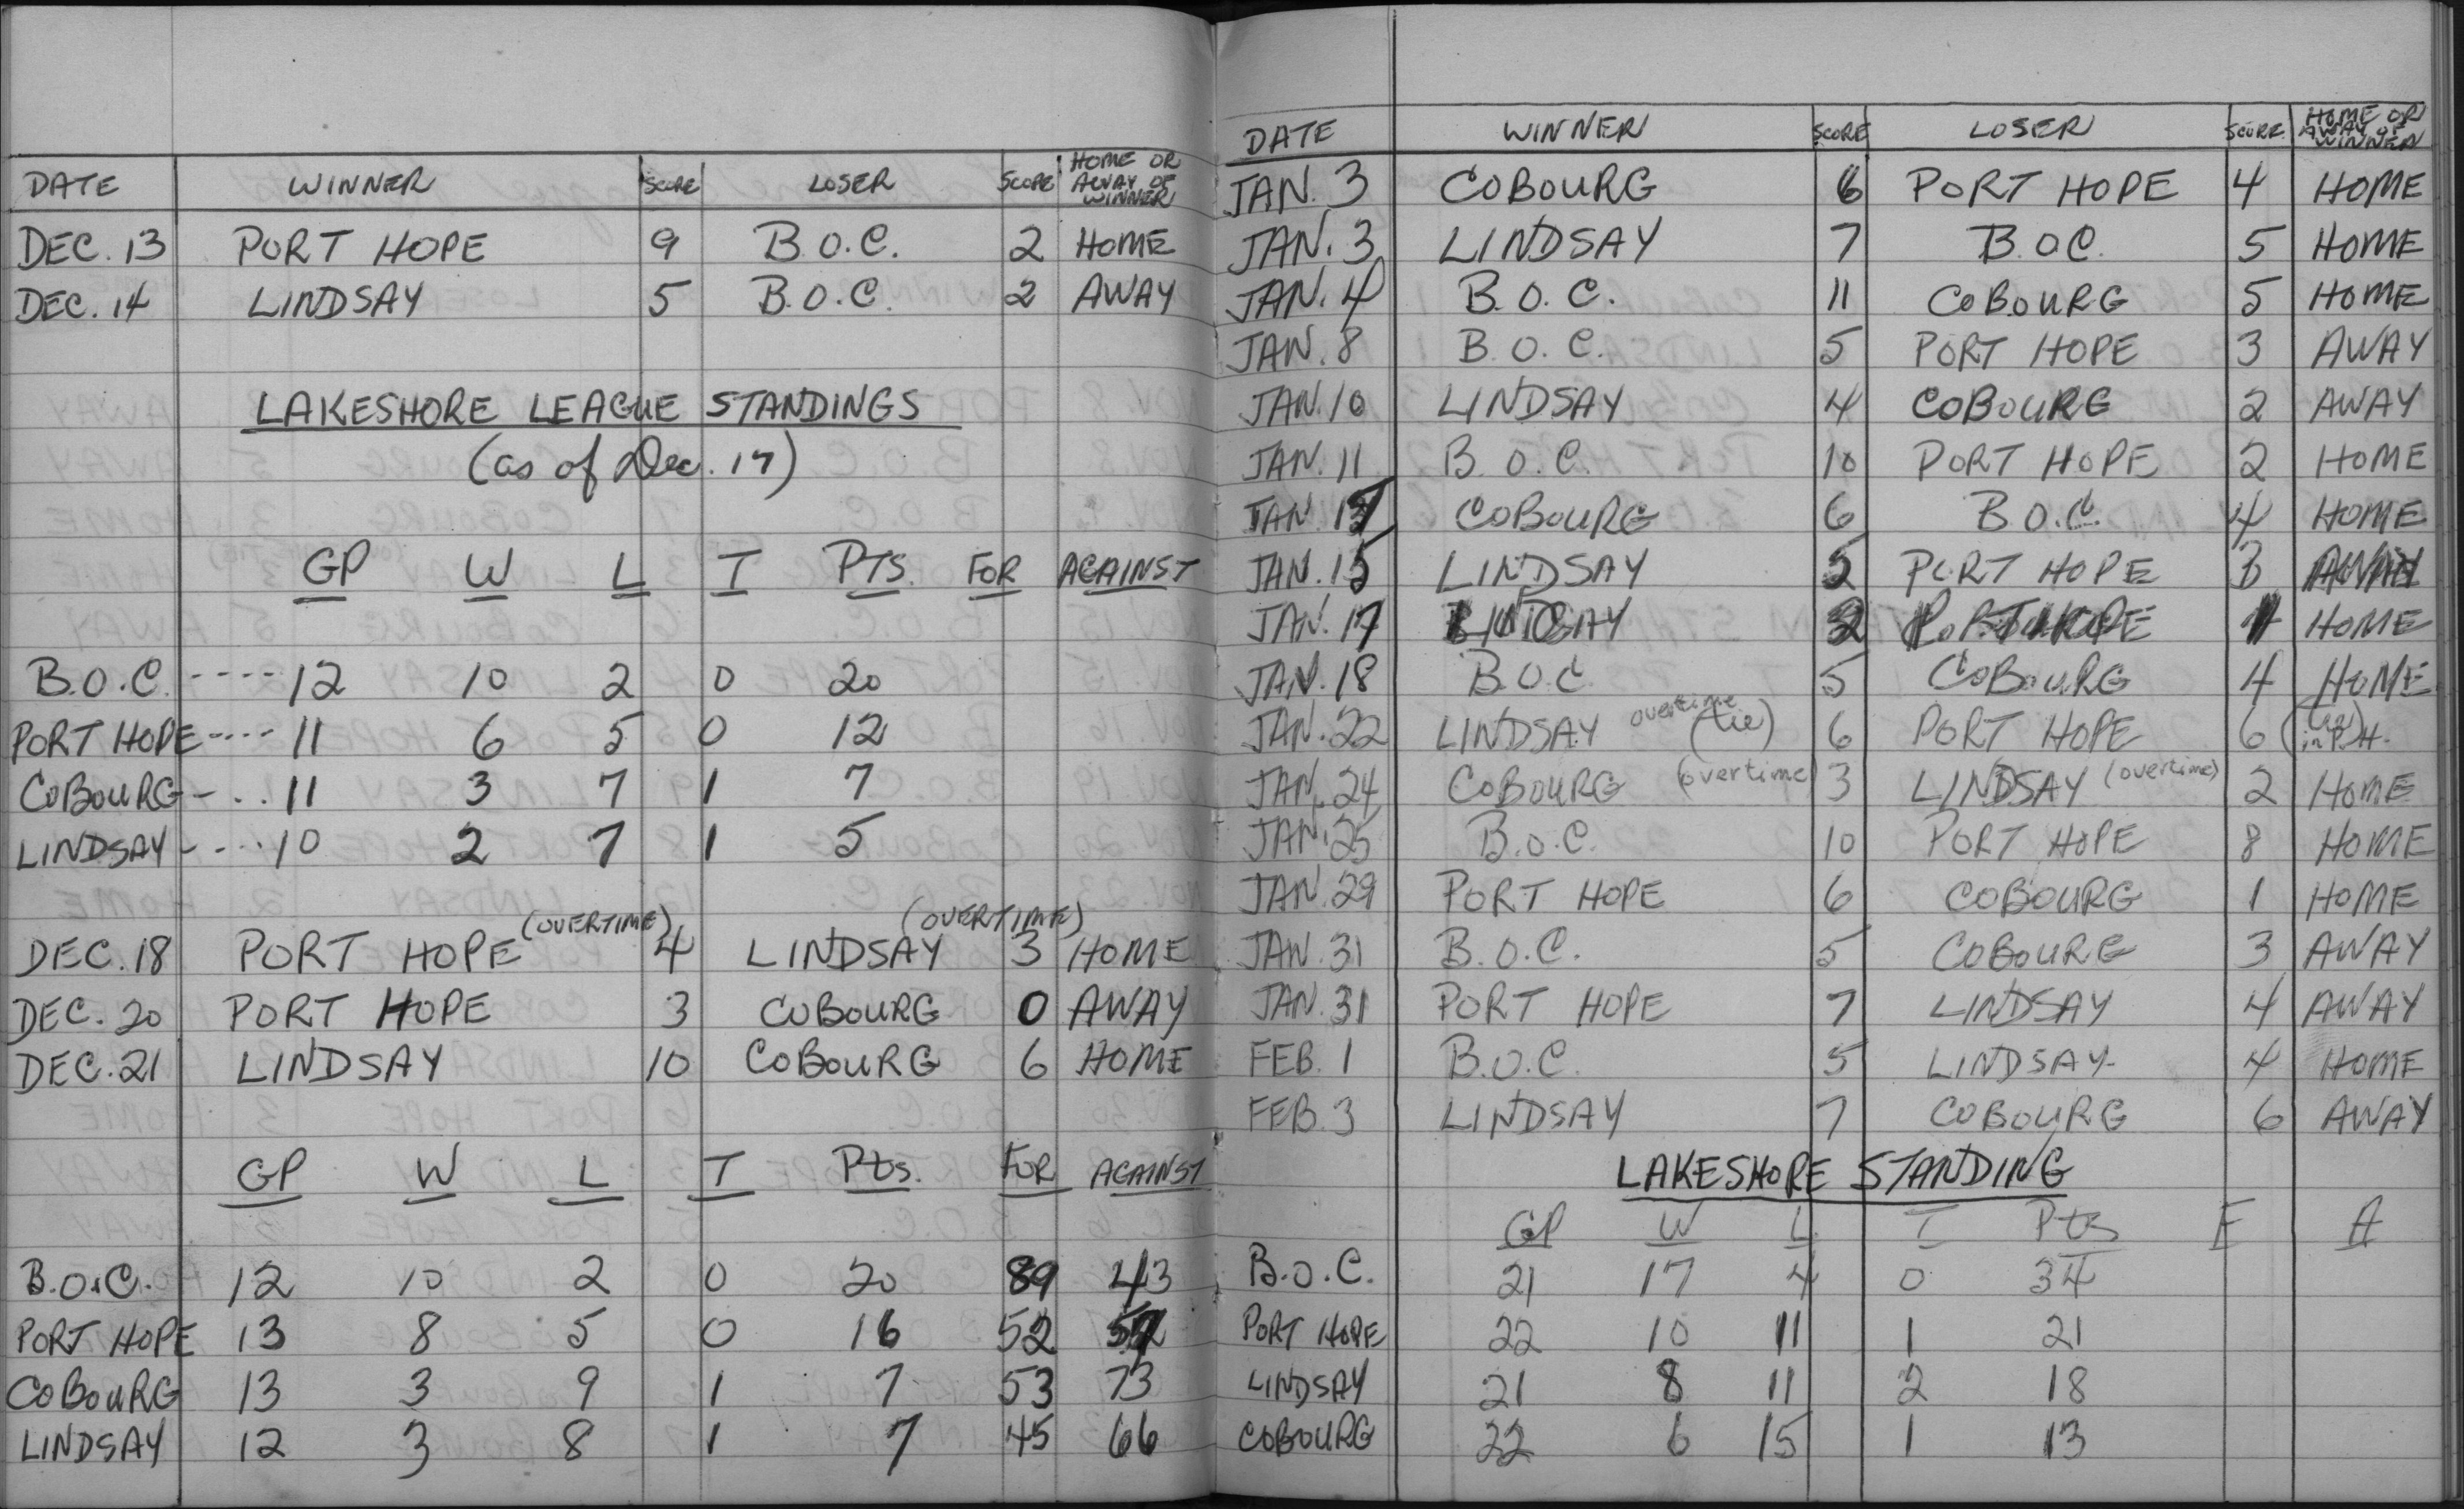 DATE WINNER SCORE LOSER SCORE HOME OR AWAY OF WINNER
DEC. 13 PORT HOPE 9 B.O.C. 2 HOME
DEC. 14 LINDSAY 5 B.O.C. 2 AWAY
LAKESHORE LEAGUE STANDINGS
(as of Dec. 17)
GP W L T PTS. FOR AGAINST
B.O.C. ---- 12 10 2 0 20
PORT HOPE ---- 11 6 5 0 12
COBOURG - .. 11 3 7 1 7
LINDSAY - --- 10 2 7 1 5
DEC. 18 PORT HOPE (OVERTIME) 4 LINDSAY (OVERTIME) 3 HOME
DEC. 20 PORT HOPE 3 COBOURG 0 AWAY
DEC. 21 LINDSAY 10 COBOURG 6 HOME
GP W L T Pts. FOR AGAINST
B.O.C. 12 10 2 0 20 89 43
PORT HOPE 13 8 5 0 16 52
COBOURG 13 3 9 1 7 53 73
LINDSAY 12 3 8 1 7 45 66
DATE WINNER SCORE LOSER SCORE HOME OR AWAY OF WINNER
JAN. 3 COBOURG 6 PORT HOPE 4 HOME
JAN. 3 LINDSAY 7 B.O.C. 5 HOME
JAN. 4 B.O.C. 11 COBOURG 5 HOME
JAN. 8 B.O.C. 5 PORT HOPE 3 AWAY
JAN. 10 LINDSAY 4 COBOURG 2 AWAY
JAN. 11 B.O.C. 10 PORT HOPE 2 HOME
JAN. COBOURG 6 B.O.C. 4 HOME
JAN. 15 LINDSAY 5 PORT HOPE 3 AWAY
JAN. 17 LINDSAY PORT HOPE HOME
JAN. 18 B.O.C 5 COBOURG 4 HOME
JAN. 22 LINDSAY overtime (tie) 6 PORT HOPE 6 (tie) in P.H.
JAN. 24 COBOURG (overtime) 3 LINDSAY (overtime) 2 HOME
JAN. 25 B.O.C. 10 PORT HOPE 8 HOME
JAN. 29 PORT HOPE 6 COBOURG 1 HOME
JAN. 31 B.O.C. 5 COBOURG 3 AWAY
JAN. 31 PORT HOPE 7 LINDSAY 4 AWAY
FEB. 1 B.O.C. 5 LINDSAY 4 HOME
FEB. 3 LINDSAY 7 COBOURG 6 AWAY
LAKESHORE STANDING
GP W L T Pts F A
B.O.C. 21 17 4 0 34
PORT HOPE 22 10 11 1 21
LINDSAY 21 8 11 2 18
COBOURG 22 6 15 1 13